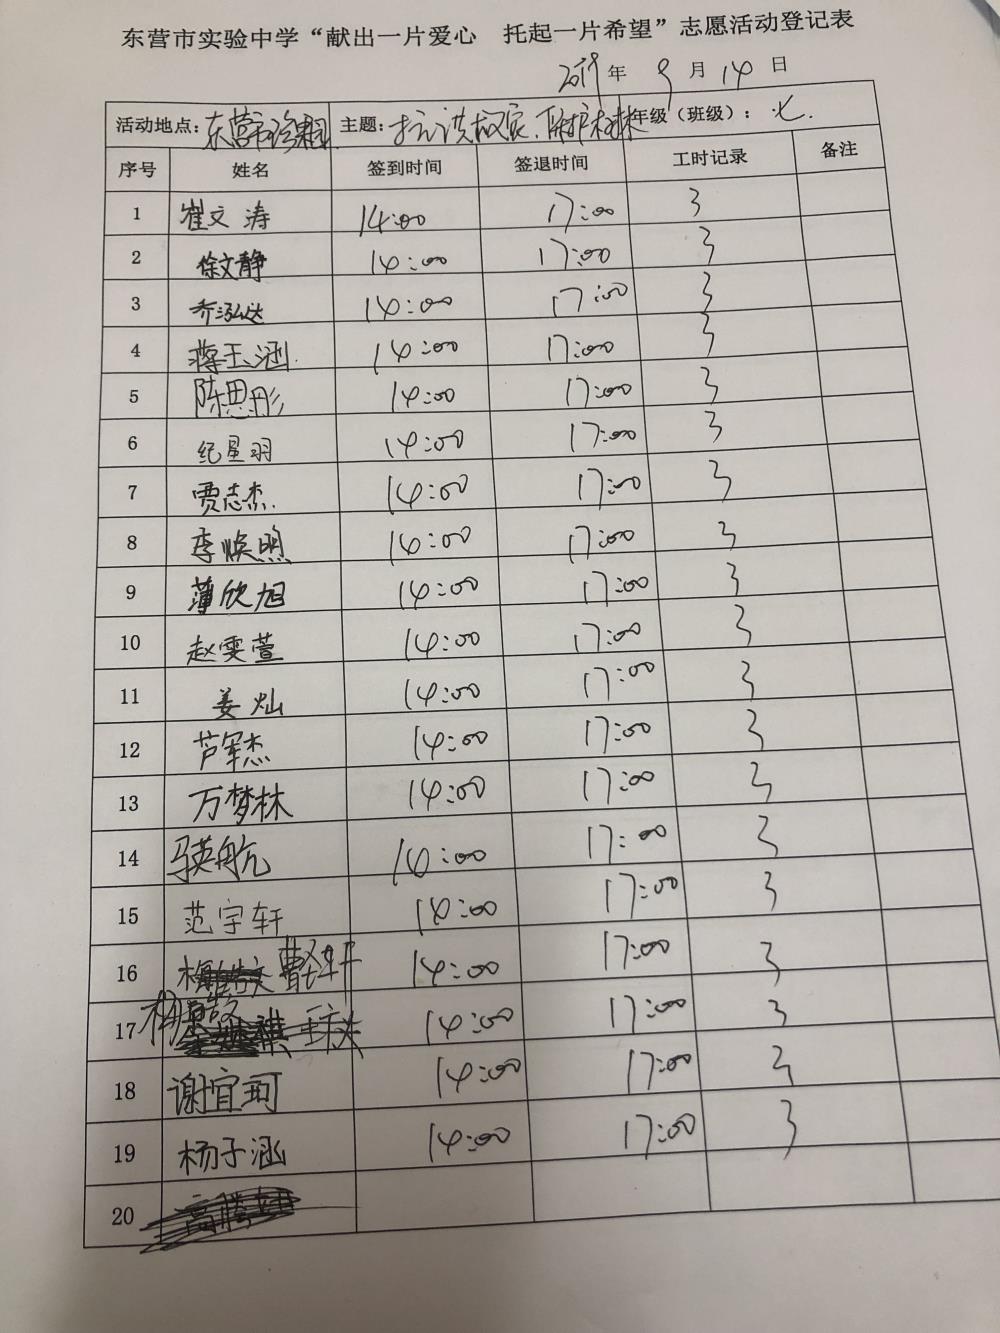 东营市实验中学“献出一片爱心 托起一片希望”志愿活动登记表
2019年 9月 14日
活动地点: 东营市 主题: 年级(班级): 七.
序号 姓名 签到时间 签退时间 工时记录 备注
1 崔文涛 14:00 17:00 3
2 徐文静 14:00 17:00 3
3 乔泓达 14:00 17:00 3
4 蒋玉涵. 14:00 17:00 3
5 陈思彤 14:00 17:00 3
6 纪星羽 14:00 17:00 3
7 贾志杰. 14:00 17:00 3
8 李焕鹍 14:00 17:00 3
9 薄欣旭 14:00 17:00 3
10 赵雯萱 14:00 17:00 3
11 姜灿 14:00 17:00 3
12 芦军杰 14:00 17:00 3
13 万梦林 14:00 17:00 3
14 马英航 14:00 17:00 3
15 范宇轩 14:00 17:00 3
16 14:00 17:00 3
17 14:00 17:00 3
18 谢宜珂 14:00 17:00 3
19 杨子涵 14:00 17:00 3
20